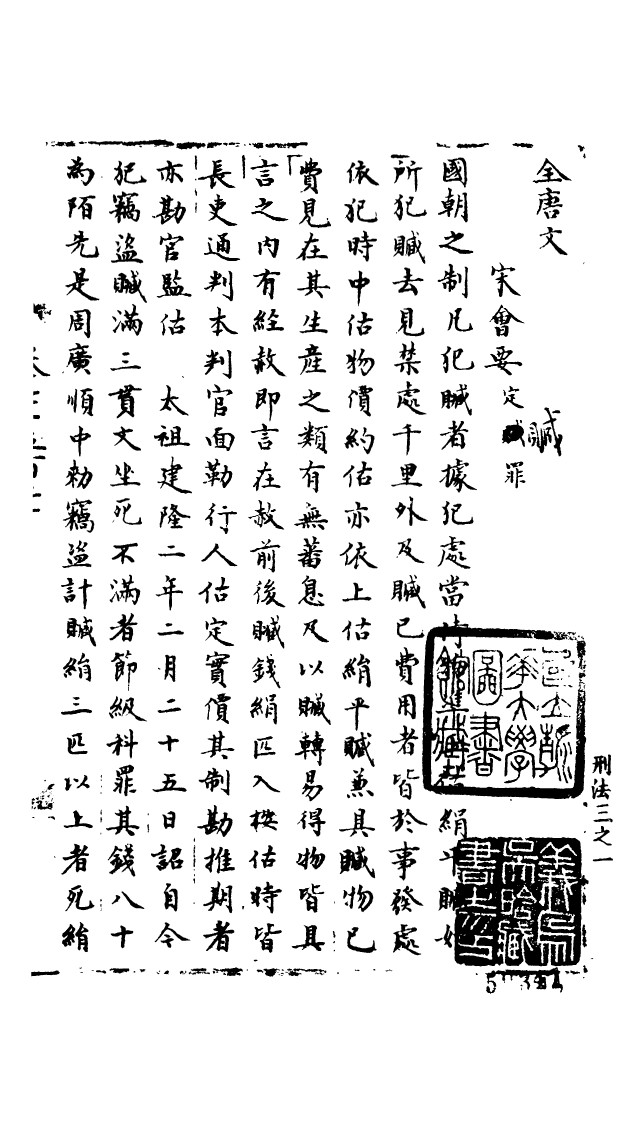 全唐文
宋會要 定贓罪
國朝之制凡犯贓者據犯處當 絹平贓如
所犯贓去見禁處千里外及贓已費用者皆於事發處
依犯時中估物價約估亦依上估絹平贓兼具贓物已
費見在其生產之類有無蕃息及以贓轉易得物皆具
言之內有經赦即言在赦前後贓錢絹匹入檢估時皆
長吏通判本判官面勒行人估定實價其制勘推期者
亦勘官監估 太祖建隆二年二月二十五日詔自今
犯竊盜贓滿三貫文坐死不滿者節級科罪其錢八十
為陌先是周廣順中勑竊盜計贓絹三匹以上者死絹
國立 華大學圖書館
義烏 藏書之
刑法三之一